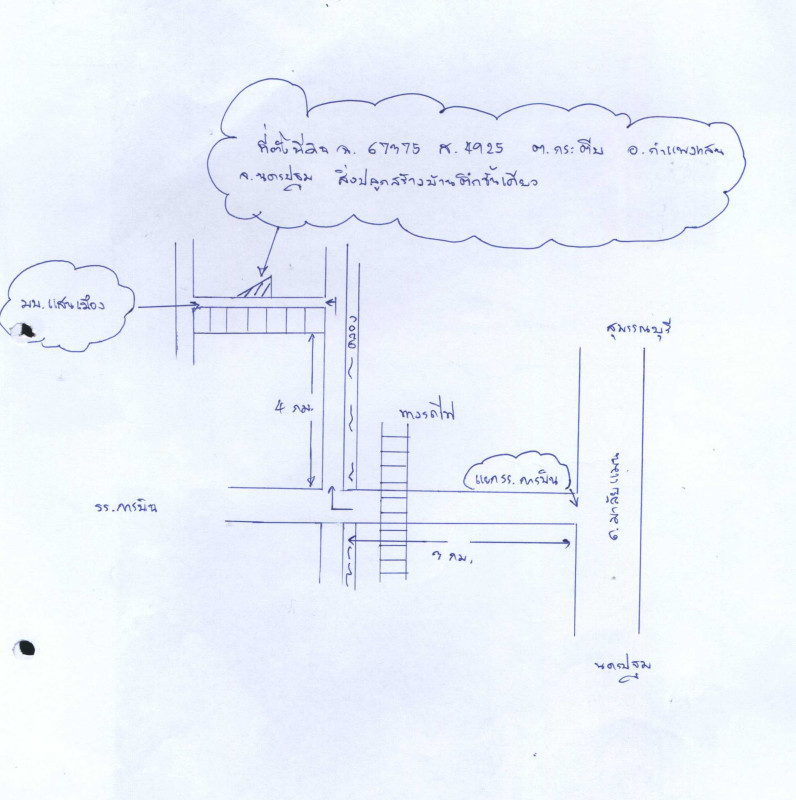 ที่ตั้งที่ดิน ฉ. 67375 ส. 4925 ต.กระตีบ อ.กำแพงแสน
จ.นครปฐม สิ่งปลูกสร้างบ้านตึกชั้นเดียว
มบ.แสนเมือง
สุพรรณบุรี
คลอง
4 กม.
ทางรถไฟ
แยกรร.การบิน
ถ.มาลัยแมน
รร.การบิน
3 กม.
นครปฐม